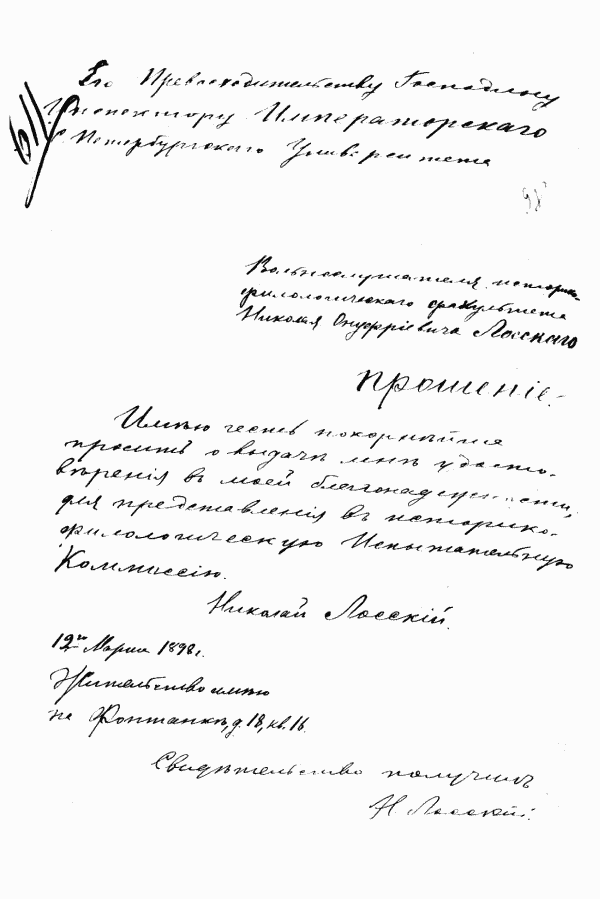 Его Превосходительству Господину
Инспектору Императорскаго
С. Петербургскаго Университета
611
98
Вольнослушателя историко-
филологическаго факультета
Николая Онуфріевича Лосскаго
Прошеніе.
Имѣю честь покорнѣйше
просить о выдачѣ мнѣ удосто-
вѣренія въ моей благонадежности,
для представленія въ историко-
филологическую Испытательную
Коммиссію.
Николай Лосскій.
12го Марта 1898 г.
Жительство имѣю
на Фонтанкѣ, д. 18, кв. 16.
Свидѣтельство получилъ
Н. Лосскій.